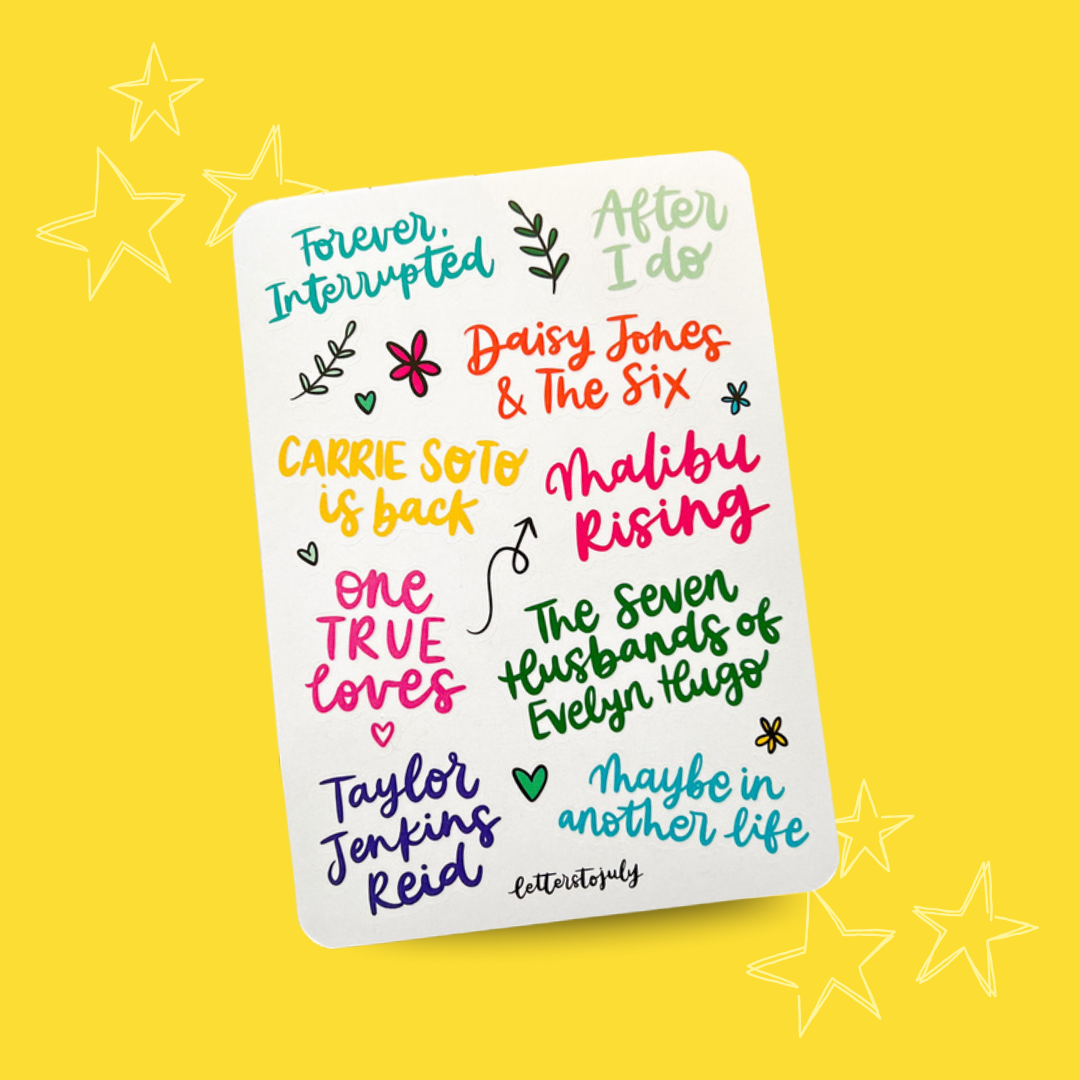 Forever,
Interrupted
After
I do
Daisy Jones
& The Six
CARRIE SOTO
is back
Malibu
Rising
one
TRUE
loves
The Seven
Husbands of
Evelyn Hugo
Taylor
Jenkins
Reid
Maybe in
another life
letterstojuly